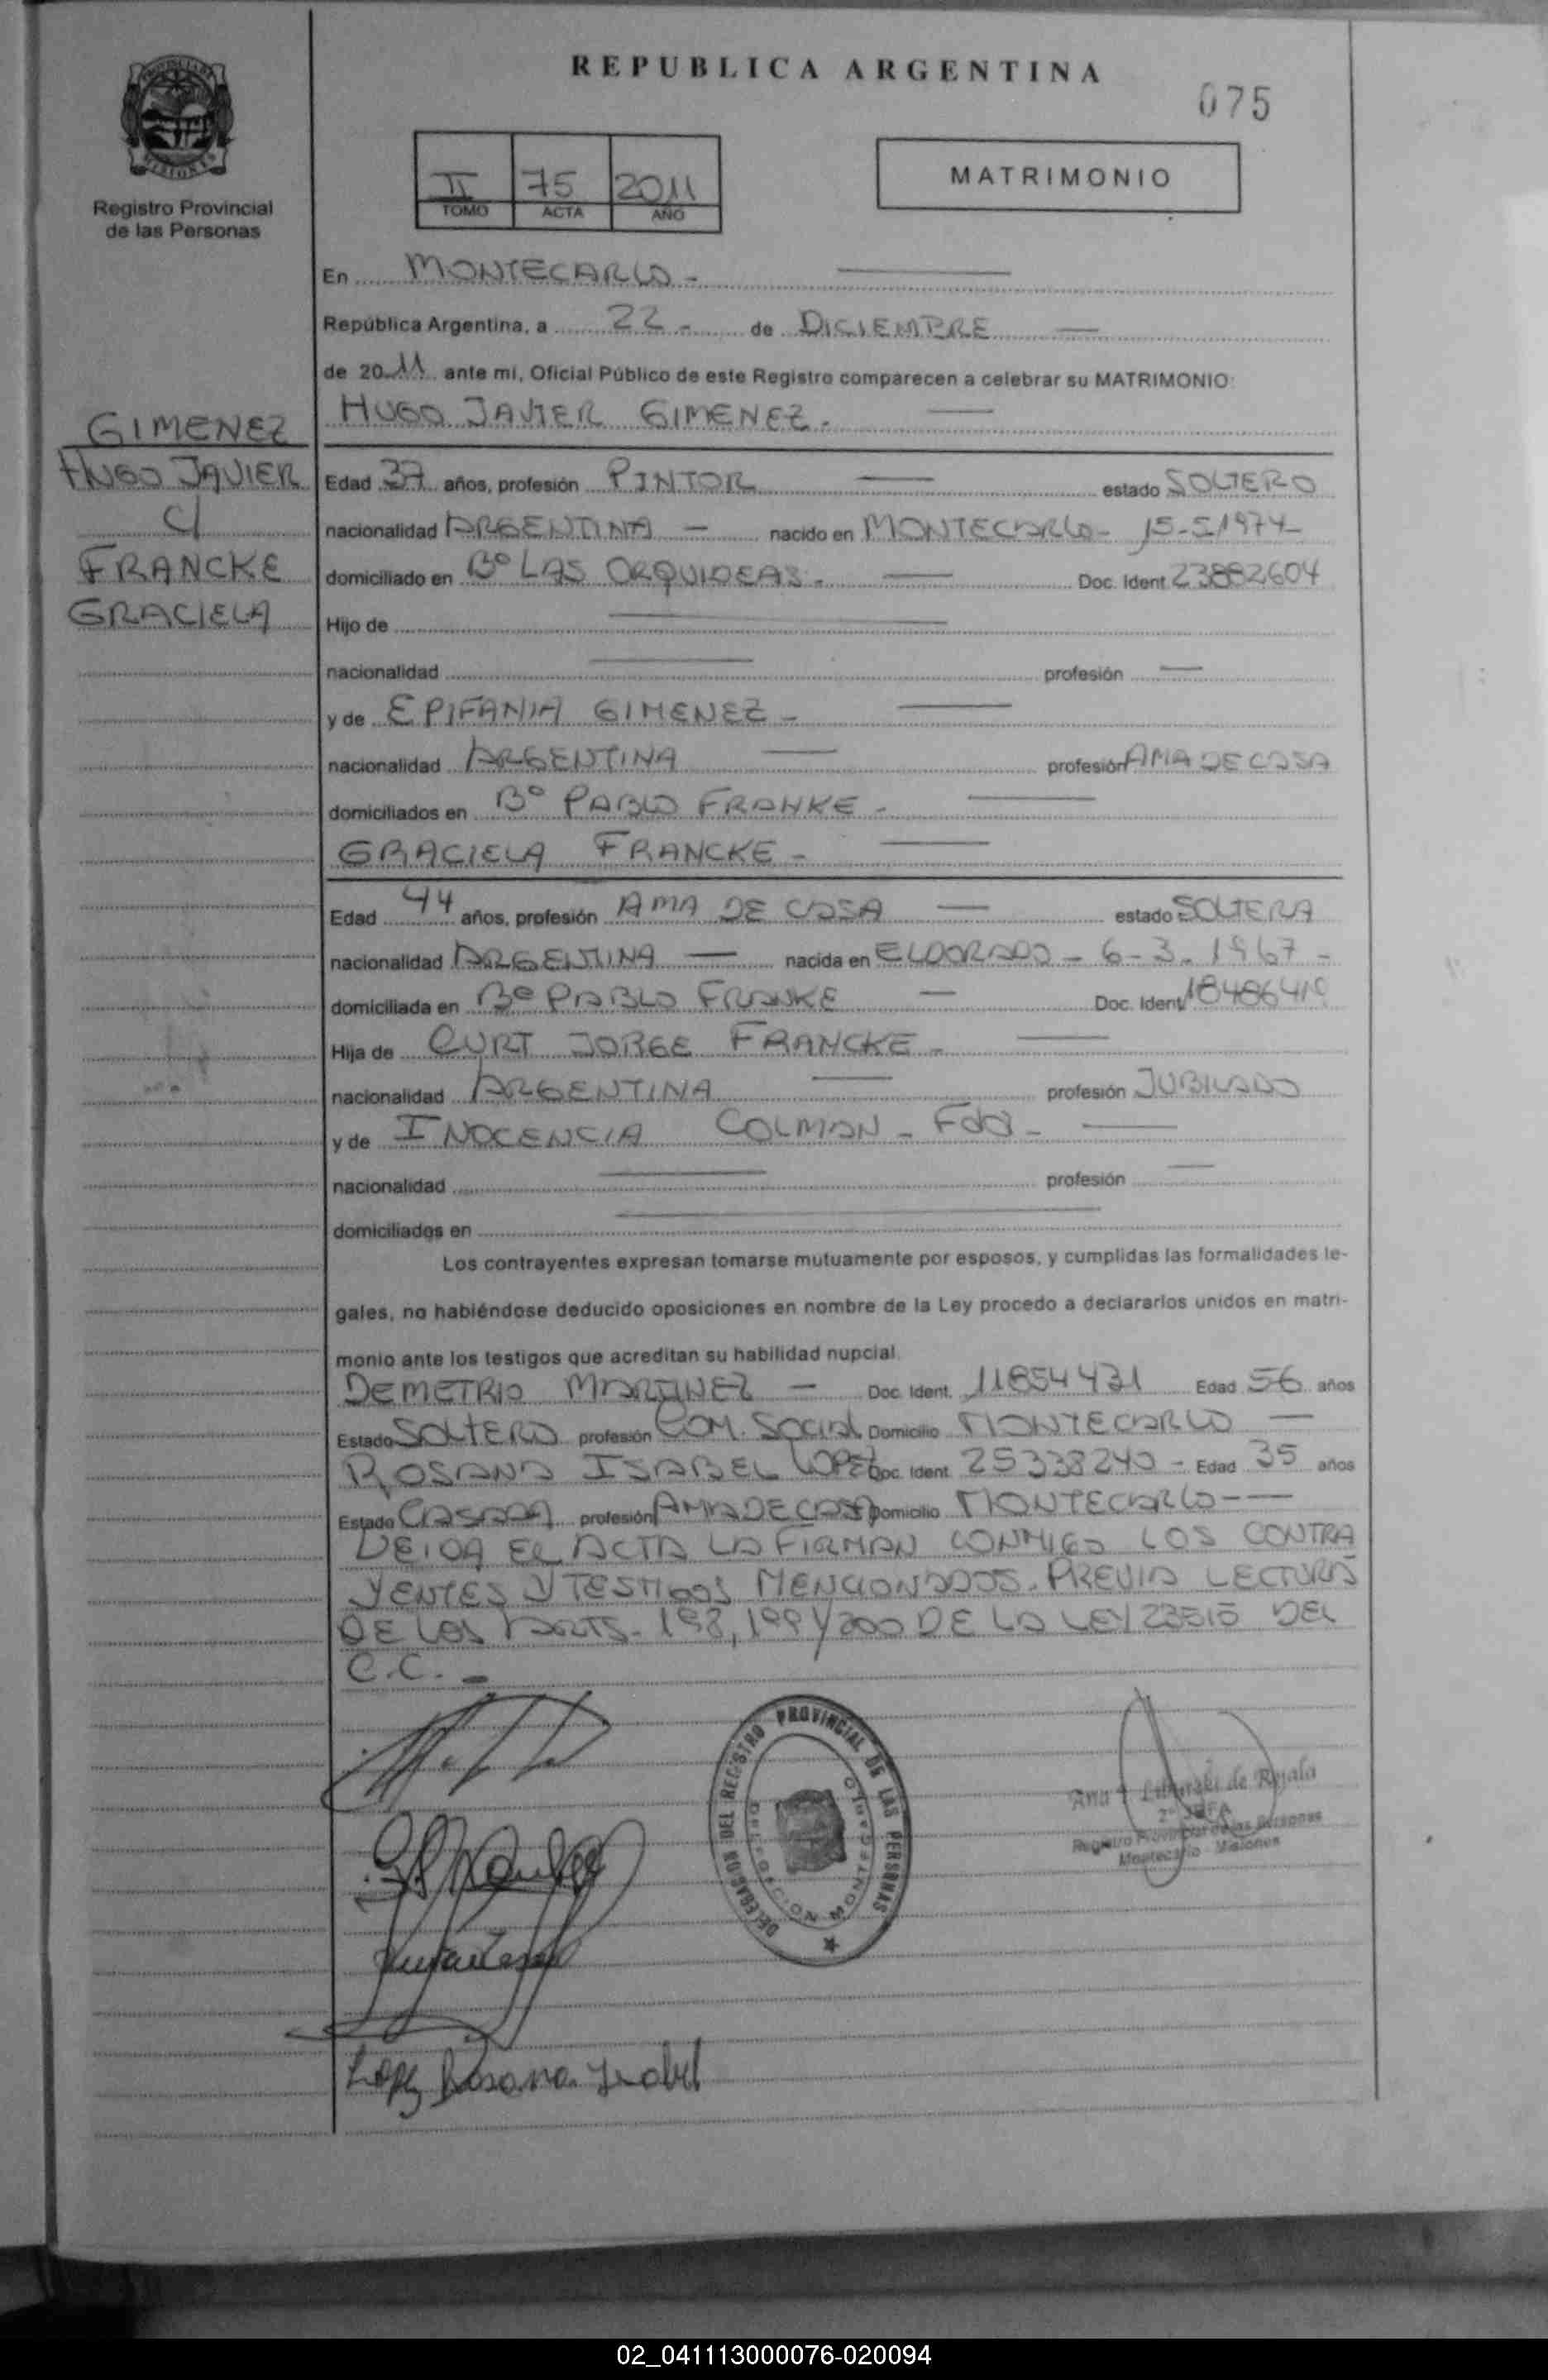 REPUBLICA ARGENTINA
075
PROVINCIA DE
MISIONES
Registro Provincial
de las Personas
II 75 2011
TOMO ACTA AÑO
MATRIMONIO
En MONTECARLO -
República Argentina, a 22 - de DICIEMBRE
de 2011 ante mi, Oficial Público de este Registro comparecen a celebrar su MATRIMONIO:
HUGO JAVIER GIMENEZ.
GIMENEZ
HUGO JAVIER
C/
FRANCKE
GRACIELA
Edad 37 años, profesión PINTOR estado SOLTERO
nacionalidad ARGENTINA - nacido en MONTECARLO - 15-5-1974-
domiciliado en Bº LAS ORQUIDEAS. Doc. Ident. 23882604
Hijo de
nacionalidad profesión
y de EPIFANIA GIMENEZ -
nacionalidad ARGENTINA profesión AMA DE CASA
domiciliados en Bº PABLO FRANKE -
GRACIELA FRANCKE -
Edad 44 años, profesión AMA DE CASA estado SOLTERA
nacionalidad ARGENTINA nacida en ELDORADO - 6-3-1967-
domiciliada en Bº PABLO FRANKE Doc. Ident.
Hija de CURT JORGE FRANCKE -
nacionalidad ARGENTINA profesión JUBILADO
y de INOCENCIA COLMAN - Fda -
nacionalidad profesión
domiciliados en
Los contrayentes expresan tomarse mutuamente por esposos, y cumplidas las formalidades le-
gales, no habiéndose deducido oposiciones en nombre de la Ley procedo a declararlos unidos en matri-
monio ante los testigos que acreditan su habilidad nupcial.
DEMETRIO MARTINEZ - Doc. Ident. 11854431 Edad 56 años
Estado SOLTERO profesión COM. SOCIAL Domicilio MONTECARLO
ROSANA ISABEL LOPEZ Doc. Ident. 25338240 - Edad 35 años
Estado CASADA profesión AMA DE CASA Domicilio MONTECARLO
LEIDA EL ACTA LA FIRMAN CONMIGO LOS CONTRA
YENTES Y TESTIGOS MENCIONADOS. PREVIA LECTURA
DE LOS ARTS. 198, 199 Y 200 DE LA LEY 23515 DEL
C.C. -
DELEGACION DEL REGISTRO PROVINCIAL DE LAS PERSONAS
DELEGACION MONTECARLO
Ana de Rojala
2º JEFA
Registro Provincial de las Personas
Montecarlo - Misiones
Lopez Rosana Isabel
02_041113000076-020094